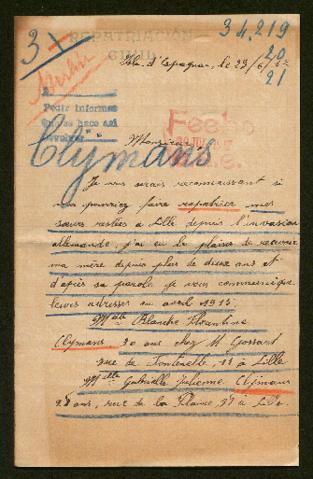 34.219
3
REPATRIACIÓN
CIVIL
20
21
Berlin
Pedir informes
Clymans
Monsieur
Je vous serais reconnaissant si
vous pourriez faire repatrier mes
sœurs restées à Lille depuis l'invasion
allemande, j'ai eu le plaisir de recevoir
ma mère depuis plus de deux ans et
d'après sa parole je vous communique
leurs adresses en avril 1915:
Melle Blanche Florentine
Clymans 20 ans chez M. Gossart
rue de Fontenelle, 11 à Lille
Melle Gabrielle Julienne Clymans
28 ans, rue de la Plaine 37 à Lille